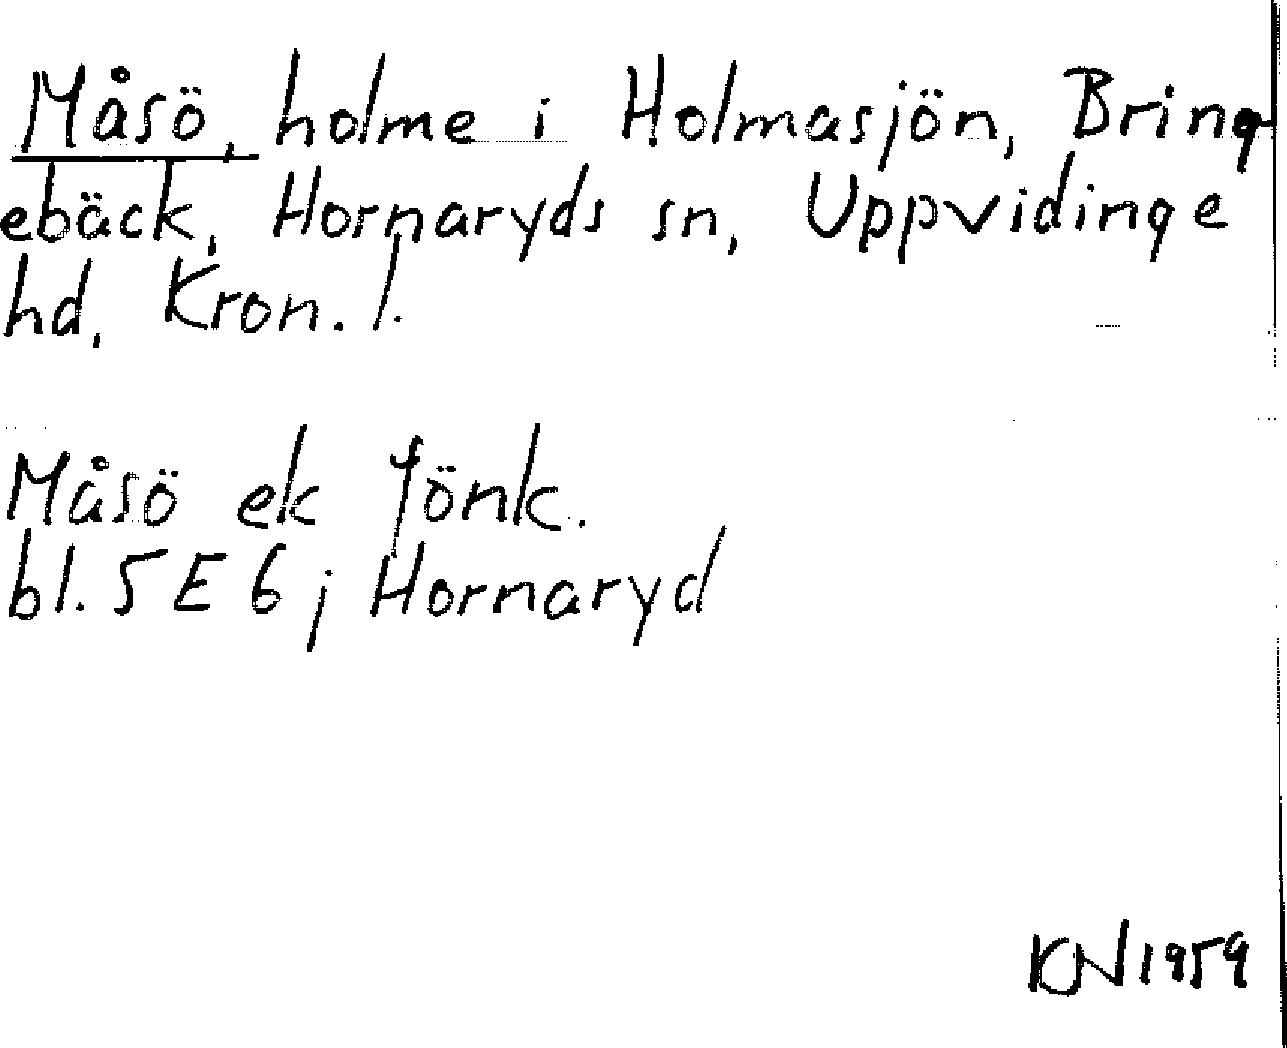 Måsö, holme i Holmasjön, Bring
ebäck, Hornaryds sn, Uppvidinge
hd, Kron. l.
Måsö ek Jönk.
bl. 5 E 6 j Hornaryd
KN 1959